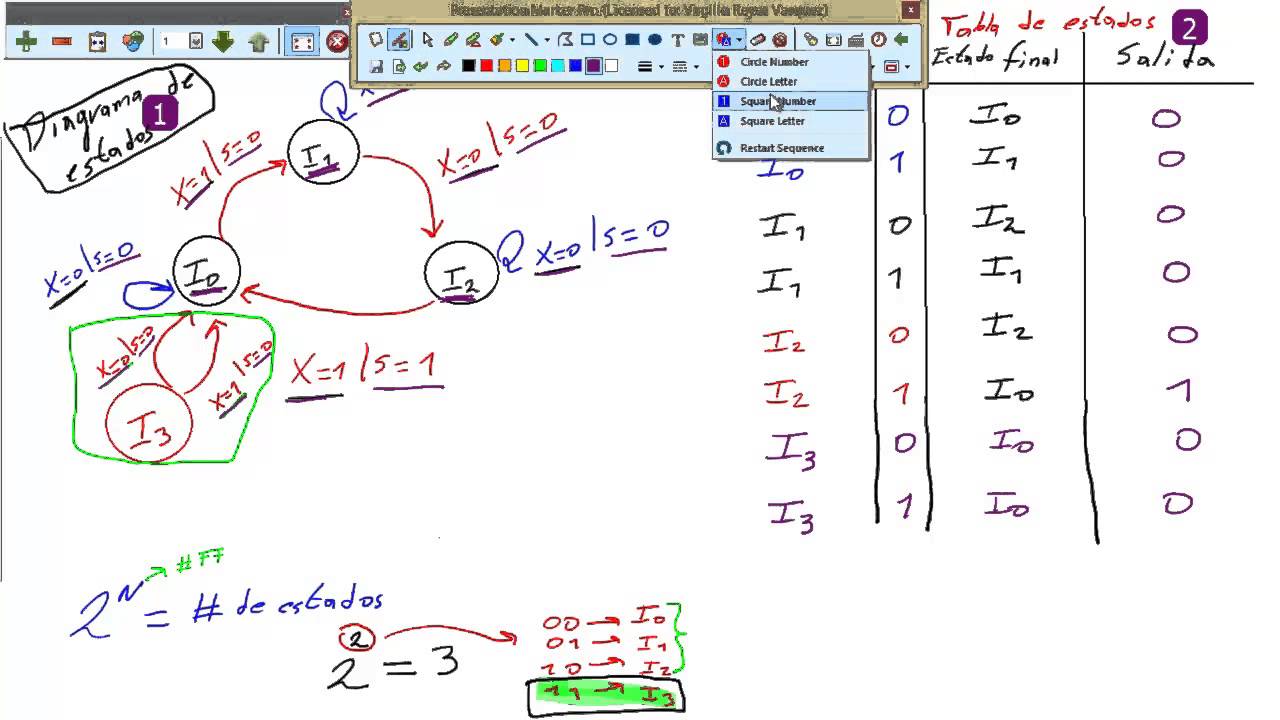 Presentation Marker Pro (Licensed to: Virgilio Reyes Vasquez)
1
Circle Number
Circle Letter
Square Number
Square Letter
Restart Sequence
Diagrama de
estados
1
X=1/S=0
I1
X=0/S=0
X=0/S=0
I0
I2
X=0/S=0
X=0/S=0
X=1/S=0
I3
X=1/S=1
Tabla de estados 2
Estado final Salida
0 I0 0
I0 1 I1 0
I1 0 I2 0
I1 1 I1 0
I2 0 I2 0
I2 1 I0 1
I3 0 I0 0
I3 1 I0 0
2^N = # de estados
#FF
2^2 = 3
00 → I0
01 → I1
10 → I2
11 → I3